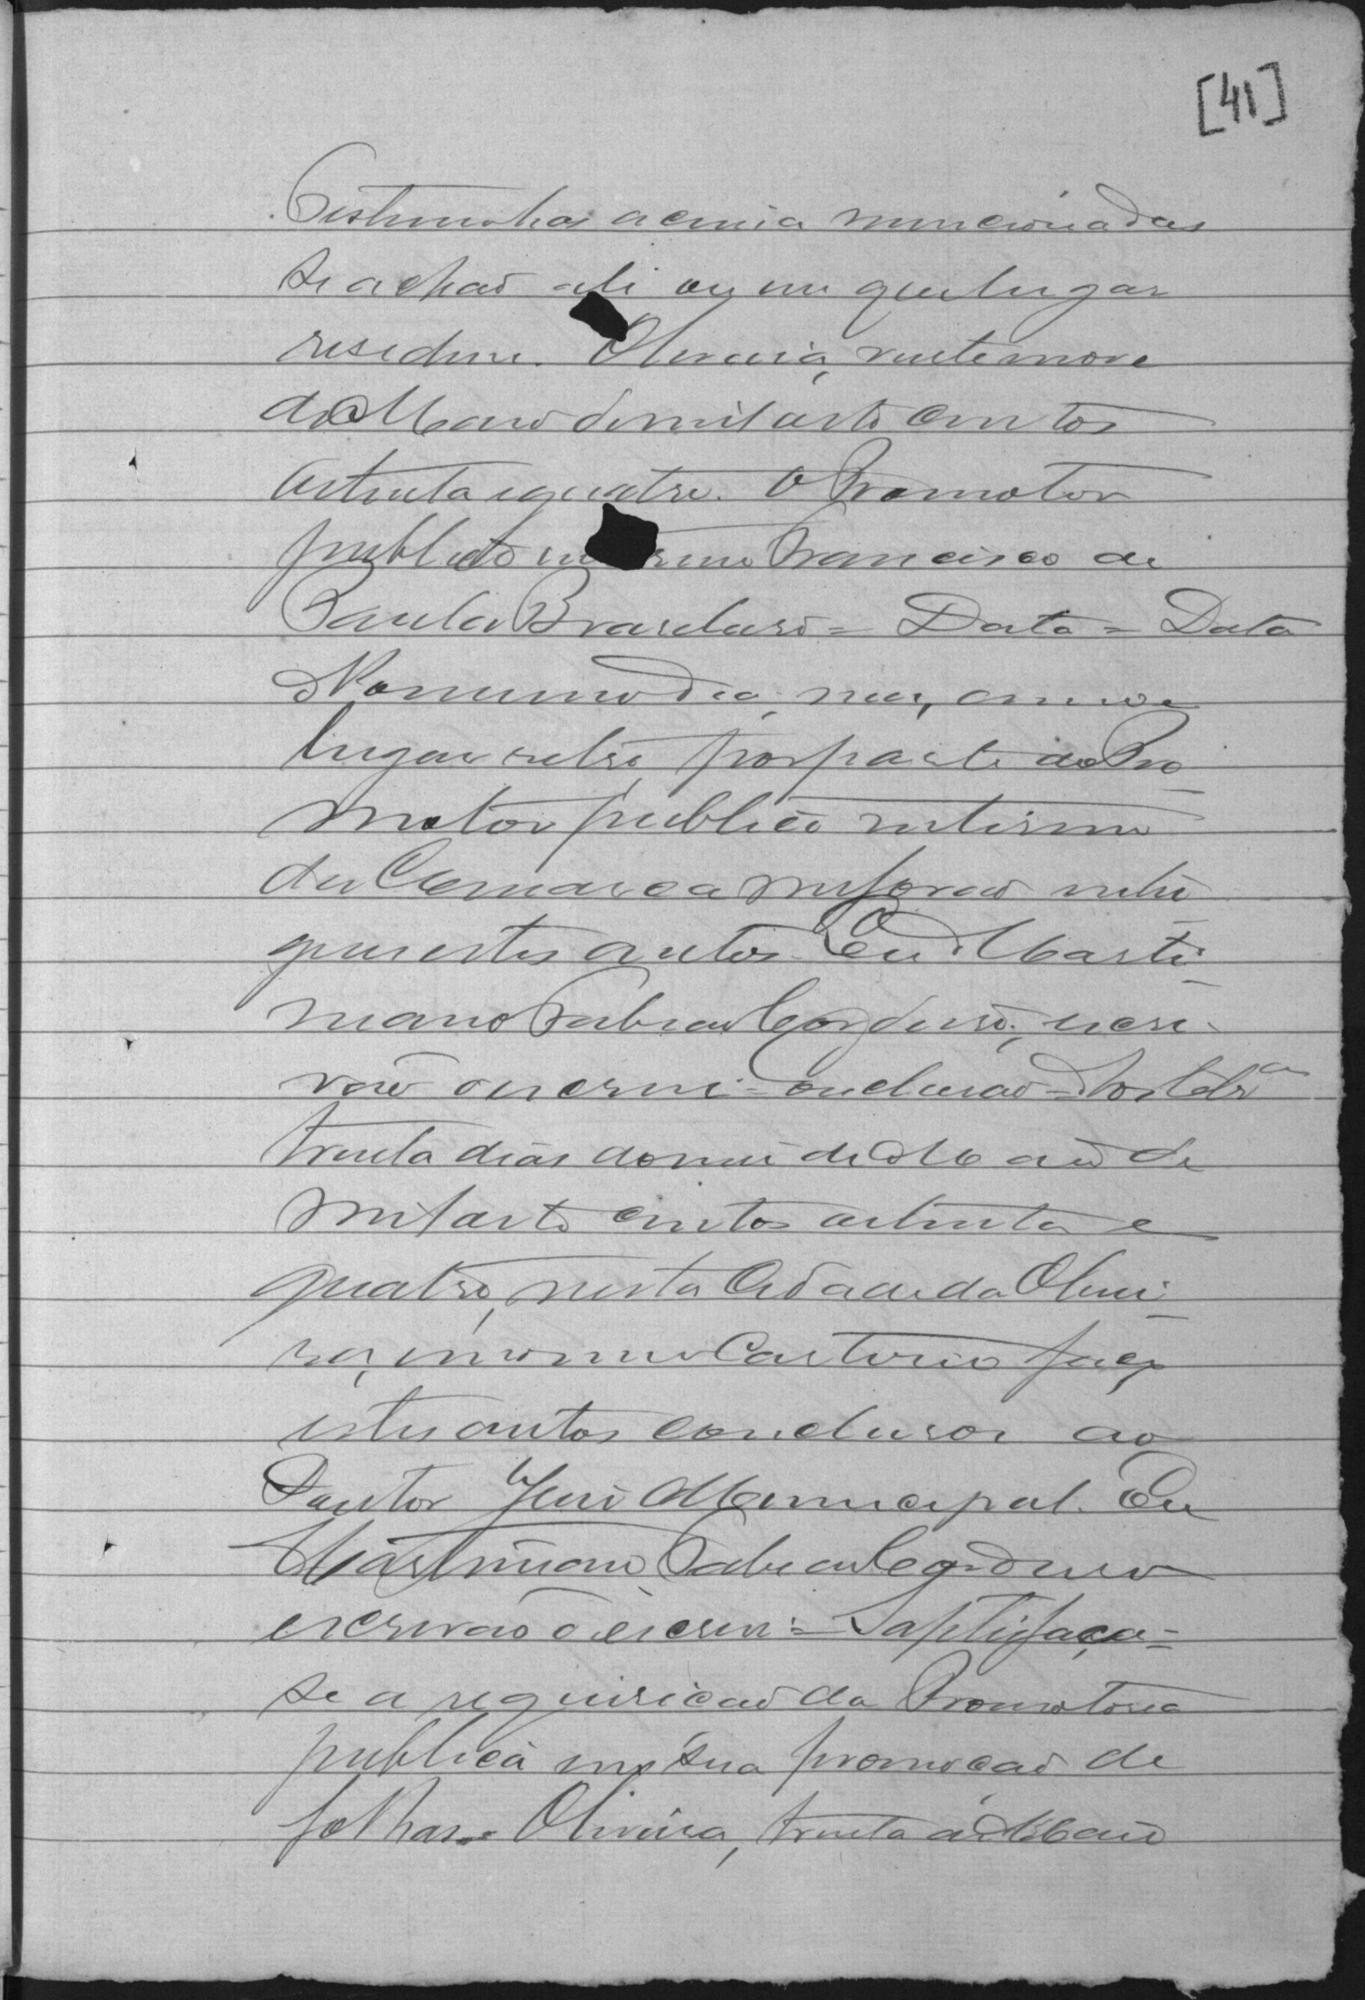 [41]
Testemunhas acima mencionadas
se achão ali ou em que lugar
residem. Oliveira, vinte nove
de Maio de mil oito centos
oitenta e quatro. O Promotor
publico interino Francisco de
Paula = Data = Data
No mesmo dia, mes, anno e
lugar retro, por parte do Pro-
motor publico interino
da Comarca me forão entre
gues estes autos. Eu Marti-
niano escri-
vão o escrevi = Conclusão = Aos
trinta dias do mes de Maio de
mil oito centos oitenta e
quatro, nesta Cidade da Olivei-
ra, em o meu Cartorio faço
estes autos conclusos ao
Doutor Juis Municipal. Eu
Martiniano
escrivão o escrevi = Saptisfaça-
se a requisicão da Promotoria
publica em sua promocão de
folhas. Oliveira, trinta de Maio